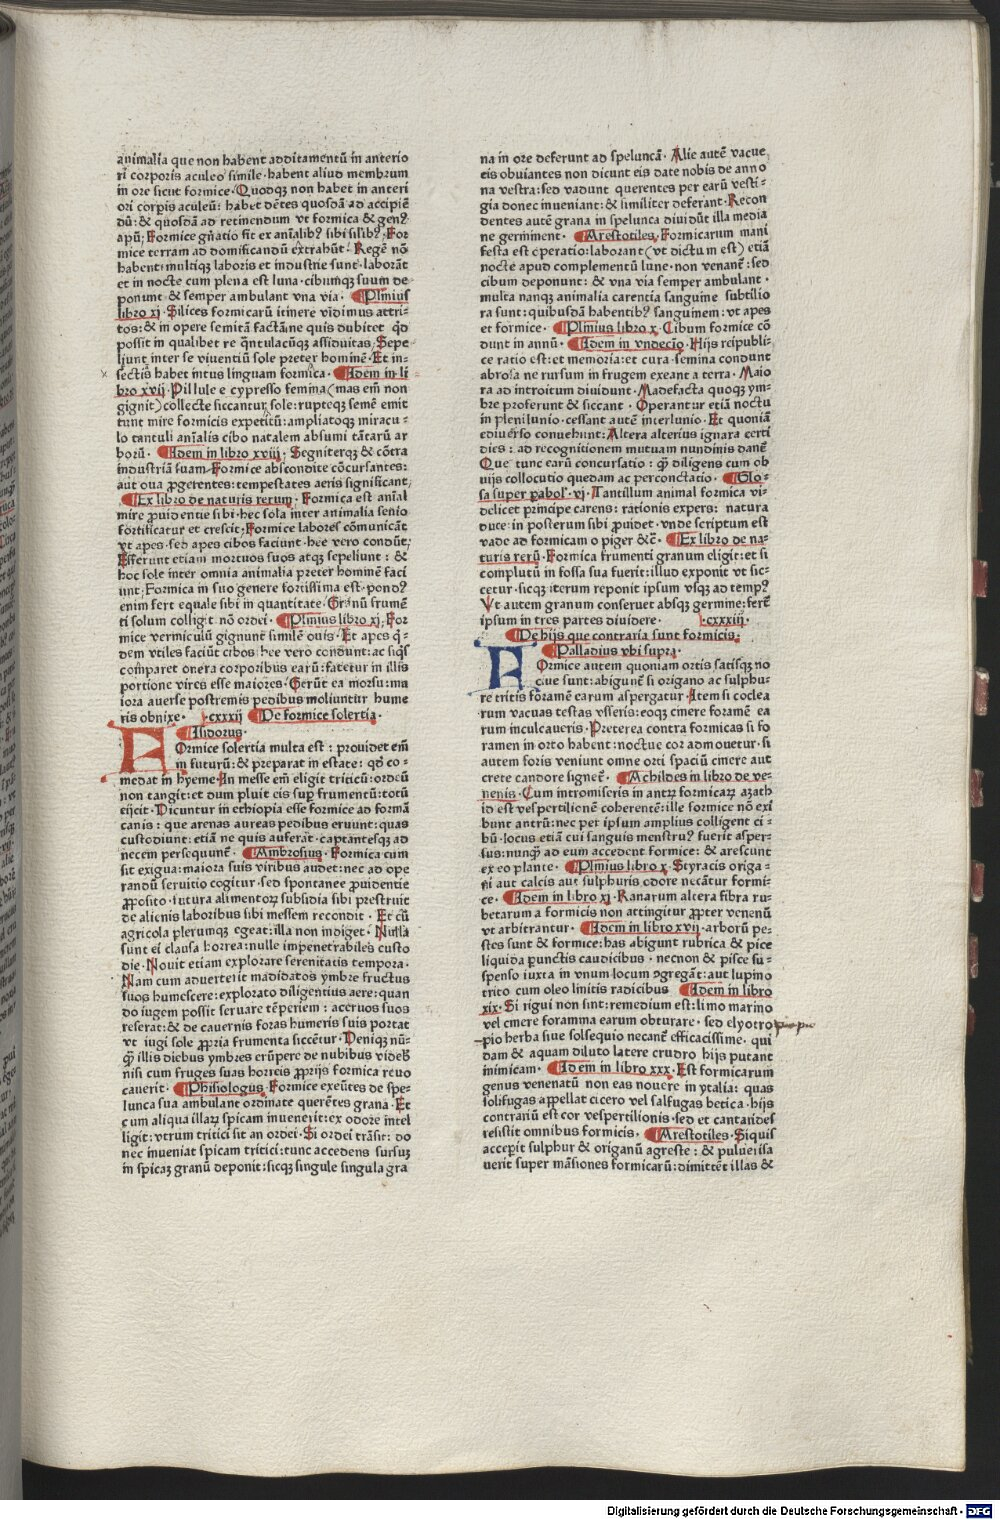 animalia que non habent additamentū in anterio
ri corporis aculeo simile· habent aliud membrum
in ore sicut formice· Quodqꝫ non habet in anteri
ori corꝑis aculeū: habet dētes quosdā ad accipiē
dū: & quosdā ad retinendum vt formica & genꝰ
apū; Formice gn̄atio fit ex aīalibꝰ sibi silibꝰ; For
mice terram ad domificandū extrahūt· Regē nō
habent: multiqꝫ laboris et industrie sunt· laborāt
et in nocte cum plena est luna· cibumqꝫ suum de
ponunt & semper ambulant vna via· Plinius
libro xj· Silices formicarū itinere vidimus attri-
tos: & in opere semitā factā: ne quis dubitet qd̄
possit in qualibet re q̄ntulacūqꝫ assiduitas; Sepe
liunt inter se viuentiū sole preter hominē· Et in-
sectis habet intus linguam formica· Idem in li
bro xvij· Pillule e cypresso femina (mas em̄ non
gignit) collecte siccantur sole: rupteqꝫ semē emit
tunt mire formicis expetitū: ampliatoqꝫ miracu-
lo tantuli aīalis cibo natalem absumi tātarū ar
borū· Idem in libro xviij; Segniterqꝫ & cōtra
industriā suam· Formice abscondite cōcursantes:
aut oua ꝓgerentes: tempestates aeris significant;
Ex libro de naturis rerum· Formica est aīal
mire ꝓuidentie sibi· hec sola inter animalia senio
fortificatur et crescit; Formice labores cōmunicāt
vt apes· sed apes cibos faciunt· hee vero condūt;
Efferunt etiam mortuos suos atqꝫ sepeliunt: &
hoc sole inter omnia animalia preter hominē faci
unt; Formica in suo genere fortissima est· pondꝰ
enim fert equale sibi in quantitate· Granū frumē
ti solum colligit nō ordei· Plinius libro xj; For
mice vermiculū gignunt similē ouis· Et apes q̄-
dem vtiles faciūt cibos· hee vero condunt: ac siqs
comparet onera corporibus earū: fatetur in illis
portione vires esse maiores· Gerūt ea morsu: ma
iora auerse postremis pedibus moliuntur hume
ris obnixe· .cxxxij De formice solertia·
Isidorus·
FOrmice solertia multa est: prouidet em̄
in futurū: & preparat in estate: qd̄ co-
medat in hyeme· In messe em̄ eligit triticū: ordeū
non tangit: et dum pluit eis suꝑ frumentū: totū
eijcit· Dicuntur in ethiopia esse formice ad formā
canis: que arenas aureas pedibus eruunt: quas
custodiunt: etiā ne quis auferat· captantesqꝫ ad
necem persequunt̄· Ambrosius· Formica cum
sit exigua: maiora suis viribus audet: nec ad ope
randū seruitio cogitur· sed spontanee ꝓuidentie
ꝓposito· futura alimentoꝝ subsidia sibi prestruit
de alienis laboribus sibi messem recondit· Et cū
agricola plerumqꝫ egeat: illa non indiget· Nulla
sunt ei clausa horrea: nulle impenetrabiles custo
die· Nouit etiam explorare serenitatis tempora·
Nam cum aduerterit madidatos ymbre fructus
suos humescere: explorato diligentius aere: quan
do iugem possit seruare tēperiem: aceruos suos
reserat: & de cauernis foras humeris suis portat
vt iugi sole ꝓpria frumenta siccētur· Deniqꝫ nū-
q̄ illis diebus ymbres erūpere de nubibus videb̄
nisi cum fruges suas horreis ꝓprijs formica reuo
cauerit· Phisiologus· Formice exeūtes de spe-
lunca sua ambulant ordinate querētes grana· Et
cum aliqua illaꝝ spicam inuenerit: ex odore intel
ligit: vtrum tritici sit an ordei· Si ordei trāsit: do
nec inueniat spicam tritici: tunc accedens sursuꝫ
in spicaꝫ granū deponit: sicqꝫ singule singula gra
na in ore deferunt ad speluncā· Alie autē vacue
eis obuiantes non dicunt eis date nobis de anno
na vestra: sed vadunt querentes per earū vesti-
gia donec inueniant: & similiter deferant· Recon
dentes autē grana in spelunca diuidūt illa media
ne germinent· Arestotiles· Formicarum mani
festa est operatio: laborant (vt dictum est) etiā
nocte apud complementū lune· non venant̄: sed
cibum deponunt: & vna via semper ambulant·
multa nanqꝫ animalia carentia sanguine subtilio
ra sunt: quibusdā habentibꝰ sanguinem: vt apes
et formice· Plinius libro x· Cibum formice cō
dunt in annū· Idem in vndecīo· Hijs reipubli-
ce ratio est: et memoria: et cura· semina condunt
abrosa ne rursum in frugem exeant a terra· Maio
ra ad introitum diuidunt· Madefacta quoqꝫ ym-
bre proferunt & siccant· Operantur etiā noctu
in plenilunio· cessant autē interlunio· Et quoniā
ediuerso conuehunt: Altera alterius ignara certi
dies: ad recognitionem mutuam nundinis danē
Que tunc earū concursatio: q̄ diligens cum ob
uijs collocutio quedam ac perconctatio· Glo-
sa super ꝑabol̄· vj· Tantillum animal formica vi-
delicet principe carens: rationis expers: natura
duce: in posterum sibi ꝓuidet· vnde scriptum est
vade ad formicam o piger &c̄· Ex libro de na-
turis rerū· Formica frumenti granum eligit: et si
complutū in fossa sua fuerit: illud exponit vt sic-
cetur· sicqꝫ iterum reponit ipsum vsqꝫ ad tempꝰ
Vt autem granum conseruet absqꝫ germine: fert̄
ipsum in tres partes diuidere· .cxxxiij·
De hijs que contraria sunt formicis·
Palladius vbi supra·
FOrmice autem quoniam ortis satisqꝫ no
ciue sunt: abigunt̄ si origano ac sulphu-
re tritis foramē earum aspergatur· Item si coclea
rum vacuas testas vsseris: eoqꝫ cinere foramē ea
rum inculcaueris· Preterea contra formicas si fo
ramen in orto habent: noctue cor admouetur· si
autem foris veniunt omne orti spaciū cinere aut
crete candore signet̄· Achildes in libro de ve-
nenis· Cum intromiseris in antꝝ formicaꝝ azath
id est vespertilionē coherentē: ille formice nō exi
bunt antrū: nec per ipsum amplius colligent ci-
bū· locus etiā cui sanguis menstruꝰ fuerit asper-
sus: nunq̄ ad eum accedent formice: & arescunt
ex eo plante· Plinius libro x· Styracis origa-
ni aut calcis aut sulphuris odore necātur formi-
ce· Idem in libro xj· Ranarum altera fibra ru-
betarum a formicis non attingitur ꝓpter venenū
vt arbitrantur· Idem in libro xvij· arborū pe-
stes sunt & formice: has abigunt rubrica & pice
liquida ꝑunctis caudicibus· necnon & pisce su-
spenso iuxta in vnum locum ꝯgregāt: aut lupino
trito cum oleo linitis radicibus Idem in libro
xix· Si rigui non sint: remedium est: limo marino
vel cinere foramina earum obturare· sed elyotro
pio herba siue solsequio necant̄ efficacissime· qui
dam & aquam diluto latere crudro hijs putant
inimicam· Idem in libro xxx· Est formicarum
genus venenatū non eas nouere in ytalia: quas
solifugas appellat cicero vel salfugas betica· hijs
contrariū est cor vespertilionis· sed et cantarides
resistit omnibus formicis· Arestotiles· Siquis
acceꝑit sulphur & origanū agreste: & puluerisa
uerit super māsiones formicarū: dimittēt illas &
Digitalisierung gefördert durch die Deutsche Forschungsgemeinschaft - DFG